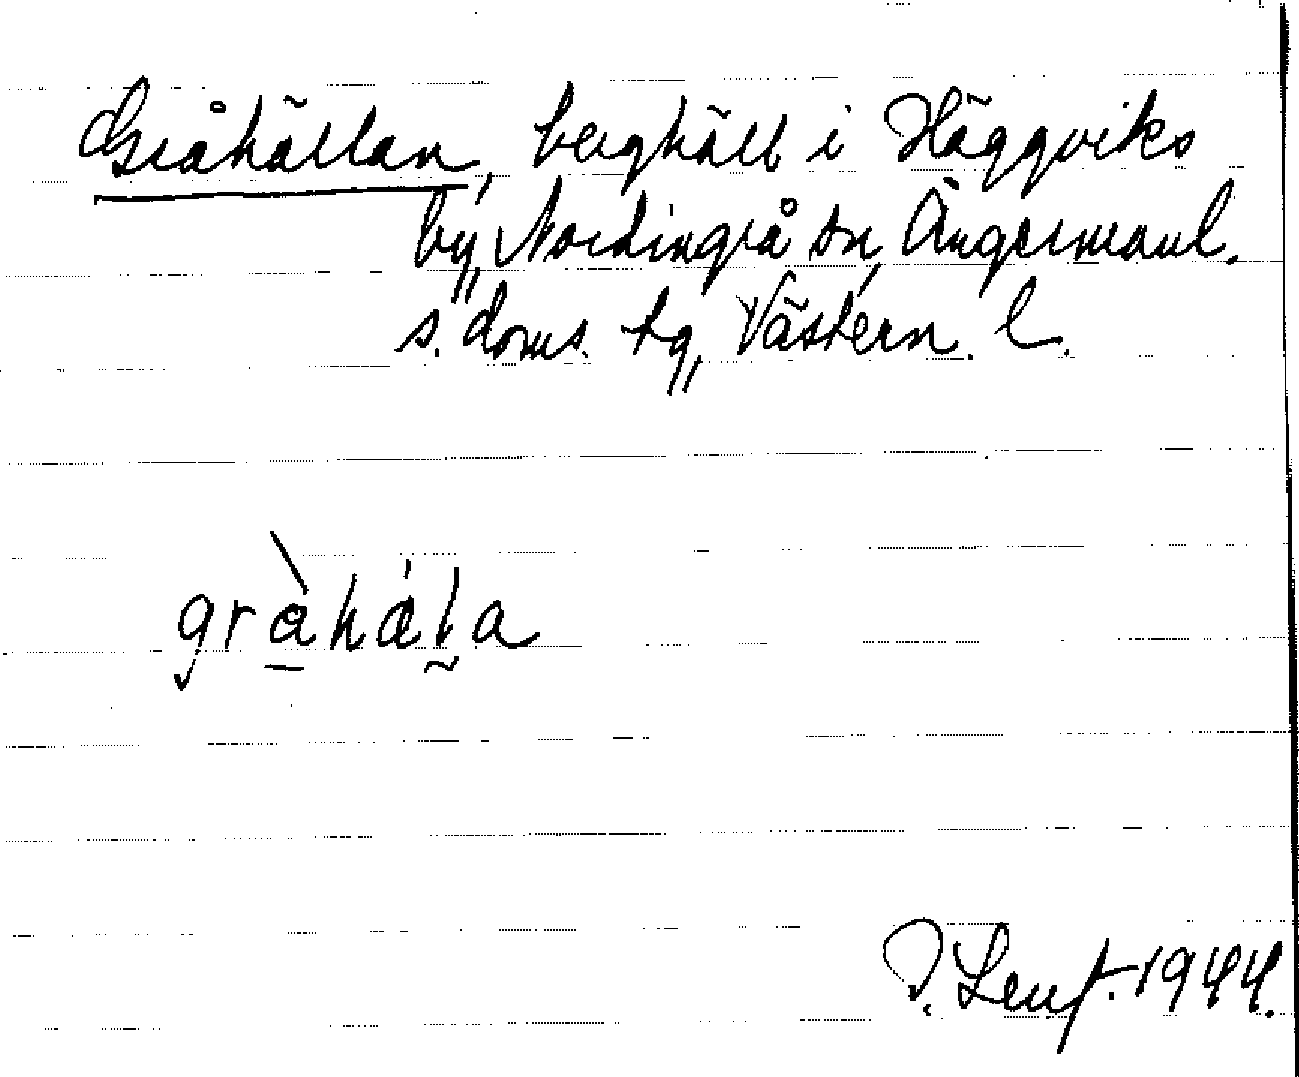 Gråhällan, berghäll i Häggviks
by, Nordingrå sn, Ångermanl.
s. doms. tg, Västern. l.
gràhála
1944.